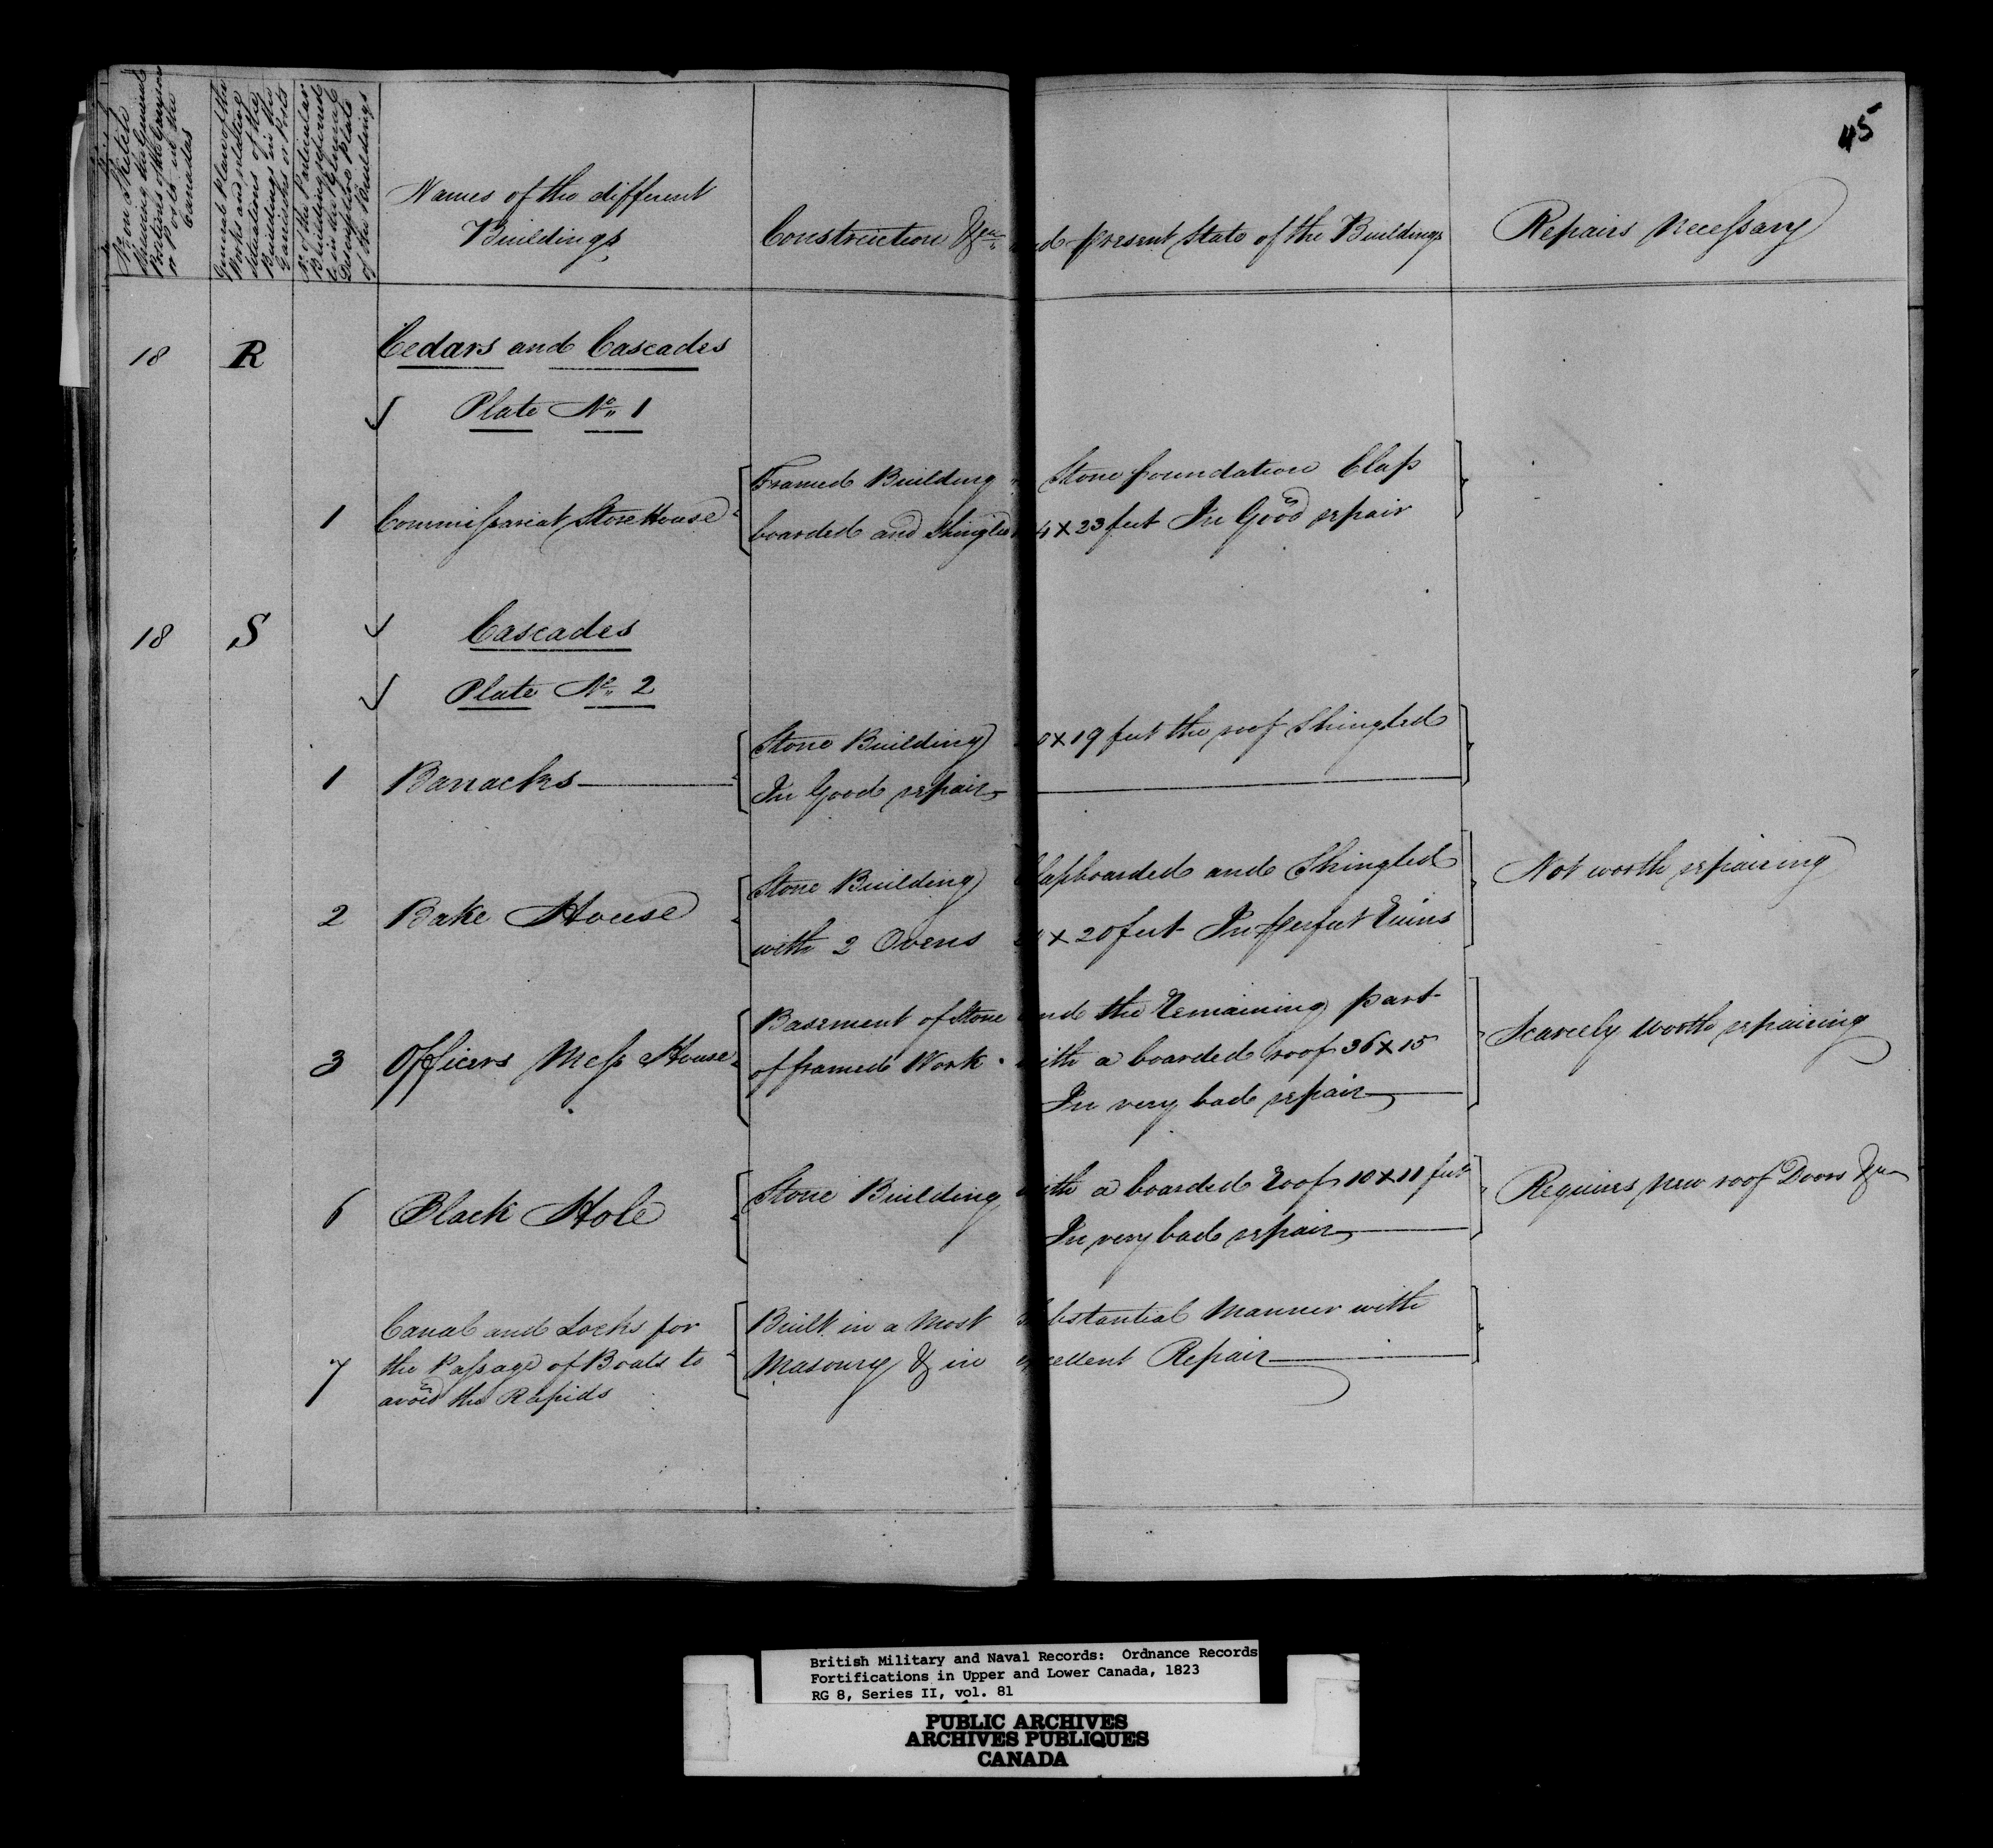 45
No on Sketch
Shewing the General
Positions of the Garrisons
or Posts in the
Canadas
General Plan of the
Works and relative
situations of the
Buildings in the
Garrisons or Posts
No of the Particular
Building referred
to in the General
Descriptive Plate
of the Buildings
Names of the different
Buildings
Construction &ca and present State of the Buildings
Repairs Necessary
18 R Cedars and Cascades
Plate No. 1
Framed Building Stone foundation Clap
1 Commissariat Store House boarded and Shingled 4 x 23 feet In Good repair
18 S Cascades
Plate No. 2
Stone Building 0 x 19 feet the roof Shingled
1 Barracks In Good repair
Stone Building Clapboarded and Shingled Not worth repairing
2 Bake House with 2 Ovens x 20 feet In perfect Ruins
Basement of Stone and the Remaining part
3 Officers Mess House of framed Work with a boarded roof 36 x 15 Scarcely Worth repairing
In very bad repair
6 Black Hole Stone Building with a boarded Roof 10 x 11 feet Requires New roof Doors &ca
In very bad repair
Canal and Locks for Built in a Most Substantial Manner with
7 the Passage of Boats to Masonry & in excellent Repair
avoid the Rapids
British Military and Naval Records: Ordnance Records
Fortifications in Upper and Lower Canada, 1823
RG 8, Series II, vol. 81
PUBLIC ARCHIVES
ARCHIVES PUBLIQUES
CANADA